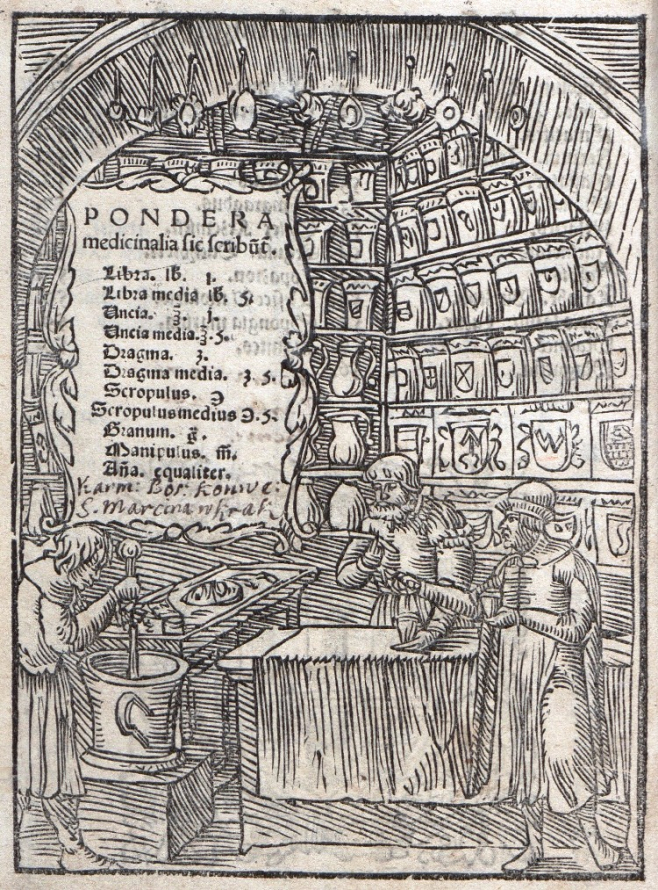 PONDERA
medicinalia sic scribūt.
Libra. lb. j.
Libra media lb. ʒ.
Uncia. ℥. j.
Uncia media. ℥. ʒ.
Dragma. ʒ.
Dragma media. ʒ. ʒ.
Scropulus. ℈
Scropulus medius ℈. ʒ.
Granum. g̃.
Manipulus. m̃.
Aña. equaliter.
Karm: Bos: Konwe:
S. Marcina w krak:
W